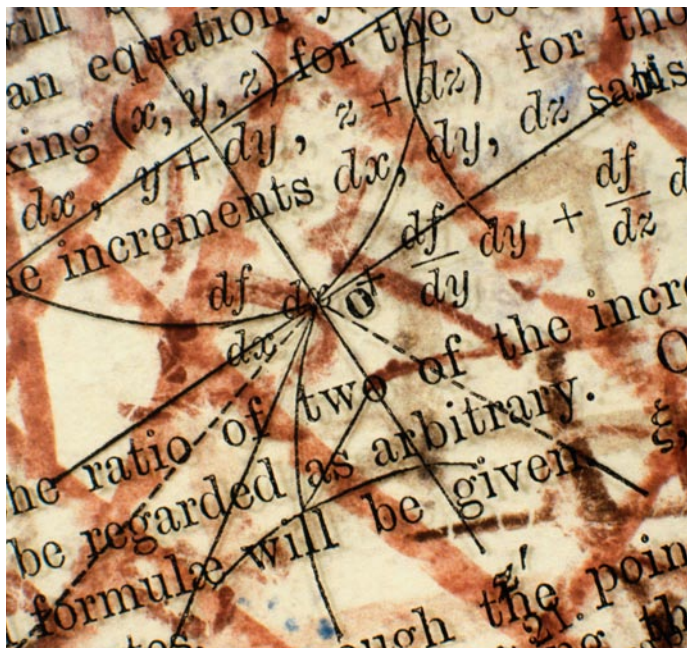 will
an equation for the
king (x, y, z) for the
dx, y + dy, z + dz) for
increments dx, dy, dz satis
df/dx dx + df/dy dy + df/dz d
O
the ratio of two of the incre
be regarded as arbitrary.
formulæ will be given
ξ,
z'
ough the poin
21.